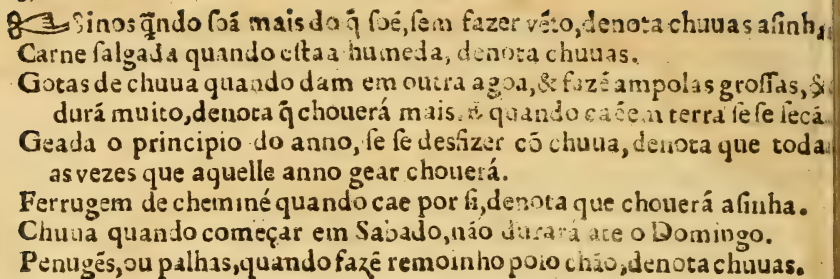 Sinos q̃ndo ſoã mais do q̃ ſoẽ, ſem fazer vẽto, denota chuuas aſinha,
Carne ſalgada quando eſtaa humeda, denota chuuas.
Gotas de chuua quando dam em outra agoa, & fazẽ ampolas groſſas, &
durã muito, denota q̃ chouerá mais. & quando caẽ em terra ſe ſe ſecã
Geada o principio do anno, ſe ſe desfizer cõ chuua, denota que toda
as vezes que aquelle anno gear chouerá.
Ferrugem de cheminé quando cae por ſi, denota que chouerá aſinha.
Chuua quando começar em Sabado, não durará ate o Domingo.
Penugẽs, ou palhas, quando fazẽ remoinho polo chão, denota chuuas.